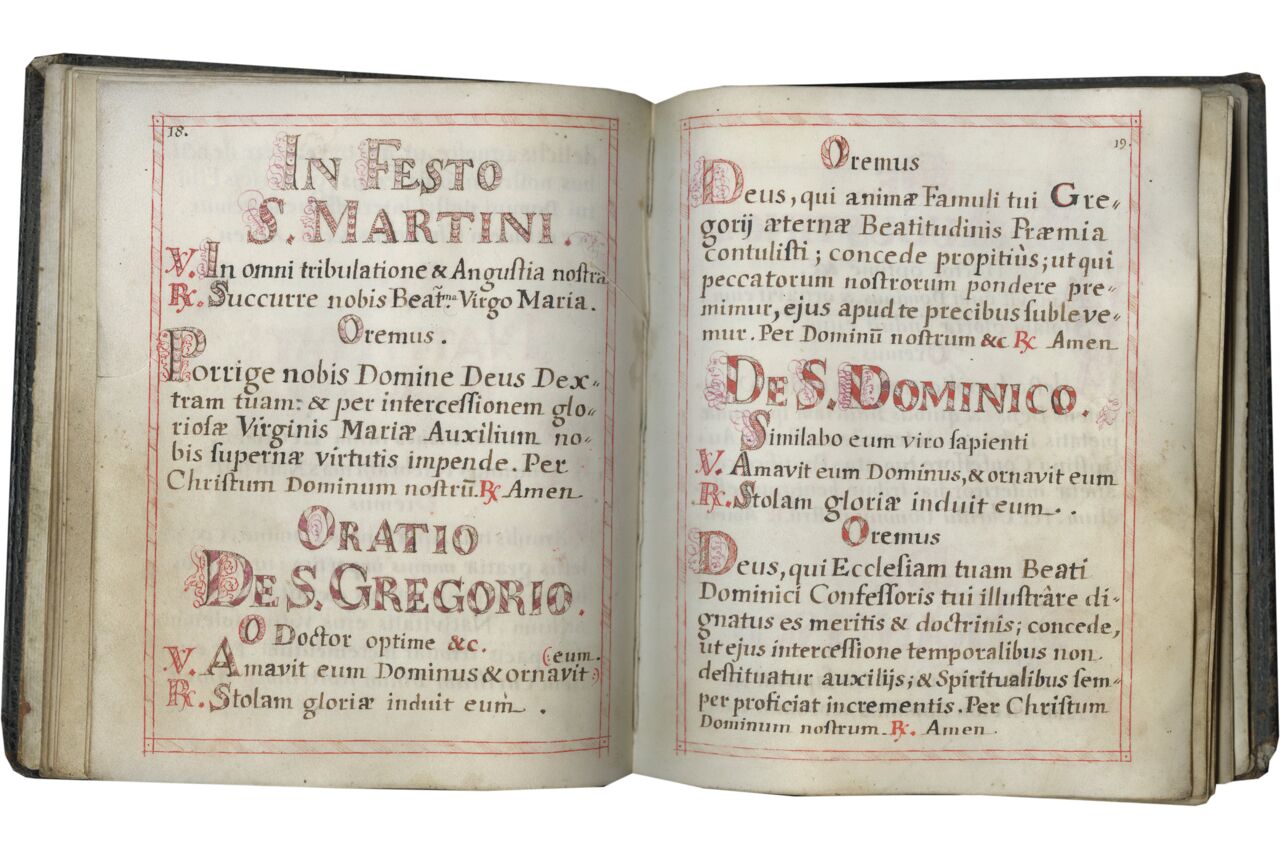 18.
IN FESTO
S. MARTINI.
℣. In omni tribulatione & Angustia nostra
℞. Succurre nobis Beat̃ma. Virgo Maria.
Oremus.
Porrige nobis Domine Deus Dex-
tram tuam: & per intercessionem glo-
riosæ Virginis Mariæ Auxilium no-
bis supernæ virtutis impende. Per
Christum Dominum nostrū. ℞ Amen
ORATIO
DE S. GREGORIO.
O Doctor optime &c.
(:eum.
℣. Amavit eum Dominus & ornavit :)
℞. Stolam gloriæ induit eum̀ .
19.
Oremus
Deus, qui animæ Famuli tui Gre-
gorij æternæ Beatitudinis Præmia
contulisti; concede propitiùs; ut qui
peccatorum nostrorum pondere pre-
mimur, ejus apud te precibus subleve-
mur. Per Dominū nostrum &c ℞ Amen
DE S. DOMINICO.
Similabo eum viro sapienti
℣. Amavit eum Dominus, & ornavit eum
℞. Stolam gloriæ induit eum . .
Oremus
Deus, qui Ecclesiam tuam Beati
Dominici Confessoris tui illustràre di-
gnatus es meritis & doctrinis; concede,
ut ejus intercessione temporalibus non
destituatur auxilijs; & Spiritualibus sem-
per proficiat incrementis. Per Christum
Dominum nostrum. ℞. Amen.